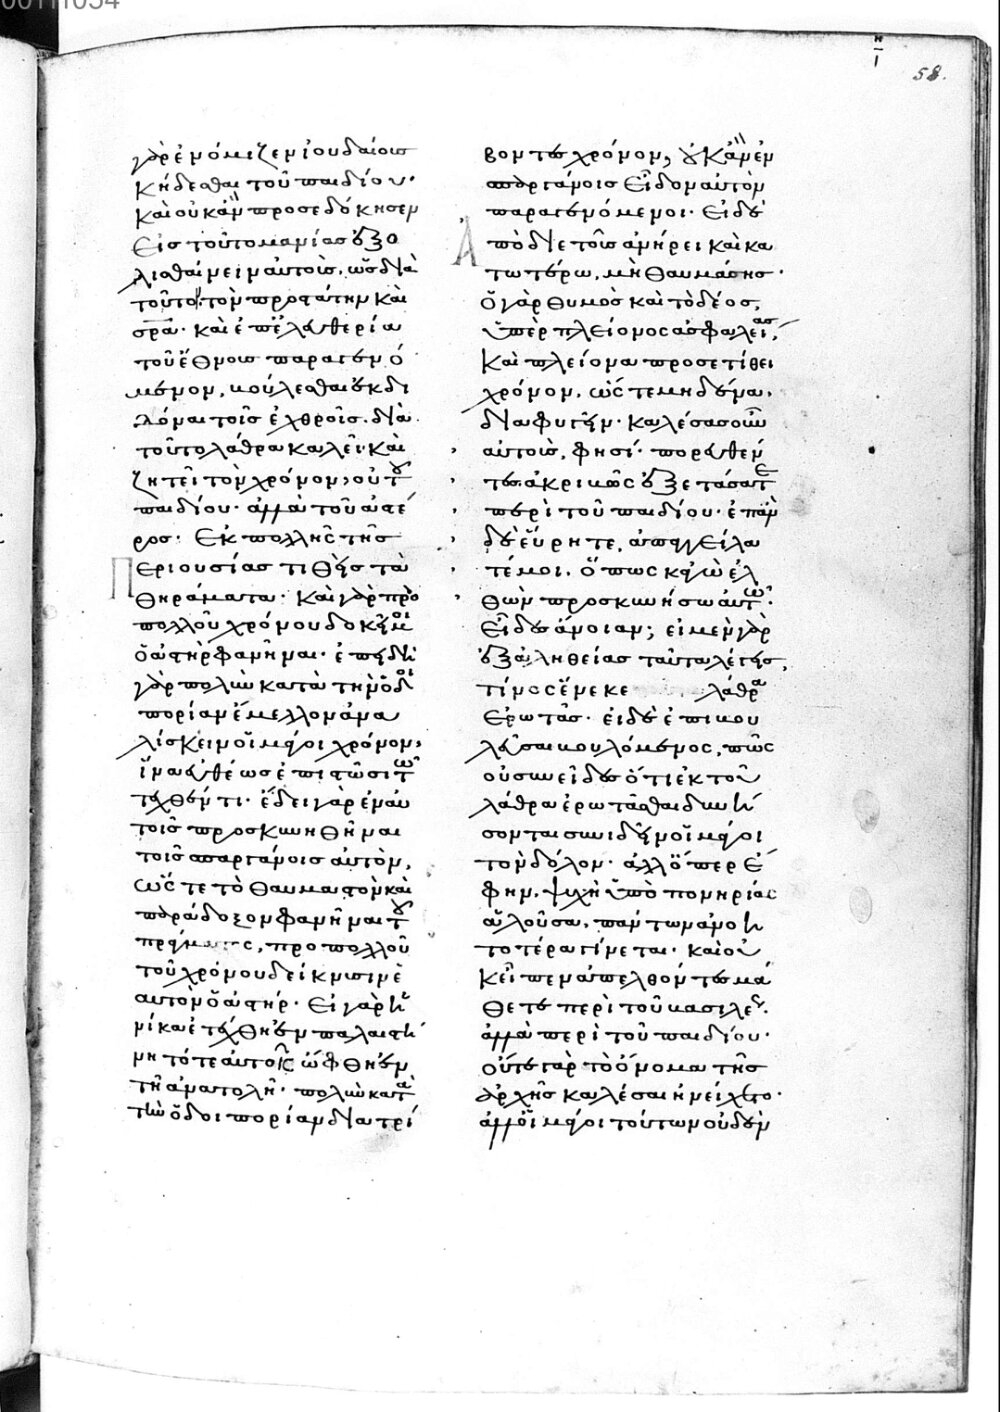 58.
γὰρ ἐνόμιζεν ἰουδαίους
κήδεσθαι τοῦ παιδίου·
καὶ οὐκ ἂν προσεδόκησεν
εἰς τοῦτο μανίας ἐξο
λισθαίνειν αὐτοὺς, ὡς διὰ
τοῦτο τὸν προστάτην καὶ
σρα· καὶ ἐπ' ἐλευθερία
τοῦ ἔθνους παραγενό
μενον, βούλεσθαι ἐκδι
δόναι τοῖς ἐχθροῖς. διὰ
τοῦτο λάθρα καλεῖ· καὶ
ζητεῖ τὸν χρόνον, οὐ τοῦ
παιδίου· ἀλλὰ τοῦ ἀστέ
ρος· Ἐκ πολλῆς τῆς
Περιουσίας τιθεὶς τὰ
θηράματα· Καὶ γὰρ πρὸ
πολλοῦ χρόνου δοκεῖ μοι
ὁ ἀστὴρ φανῆναι· ἐπειδὴ
γὰρ πολὺν κατὰ τὴν ὁδοι
πορίαν ἔμελλον ἀνα
λίσκειν οἱ μάγοι χρόνον,
ἵνα εὐθέως ἐπιστῶσι τῶ
τεχθέντι· ἔδει γὰρ ἐν αὐ
τοῖς προσκυνηθῆναι
τοῖς σπαργάνοις αὐτὸν,
ὥστε τὸ θαυμαστὸν καὶ
παράδοξον φανῆναι τοῦ
πράγματος, πρὸ πολλοῦ
τοῦ χρόνου δείκνυσιν ἑ
αυτὸν ὁ ἀστήρ· Εἰ γὰρ ἡ
νίκα ἐτέχθη ἐν παλαιστί
νη τότε αὐτοῖς ὤφθη ἐν
τῆ ἀνατολῆ· πολὺν κατὰ
τὴν ὁδοιπορίαν διατρί
βοντες χρόνον, οὐκ ἂν ἐν
σπαργάνοις εἶδον αὐτὸν
παραγενόμενοι· Εἰ δὲ
Ἀπὸ διετοῦς ἀνήρει καὶ κα
τωτέρω, μὴ θαυμάσης·
ὁ γὰρ θυμὸς καὶ τὸ δέος,
ὑπὲρ πλείονος ἀσφαλείας,
καὶ πλείονα προσετίθει
χρόνον, ὥστε μηδένα
διαφυγεῖν· καλέσας οὖν
αὐτοὺς, φησί· πορευθέν
τες ἀκριβῶς ἐξετάσατε
περὶ τοῦ παιδίου· ἐπὰν
δὲ εὕρητε, ἀπαγγείλα
τέ μοι, ὅπως κἀγὼ ἐλ
θὼν προσκυνήσω αὐτῶ·
Εἶδες ἄνοιαν; εἰ μὲν γὰρ
ἐξ ἀληθείας ταῦτα λέγεις,
τίνος ἕνεκε λάθρα
ἐρωτᾶς· εἰ δὲ ἐπιβου
λεῦσαι βουλόμενος, πῶς
οὐ συνεῖδες ὅτι ἐκ τοῦ
λάθρα ἐρωτᾶσθαι δυνή
σονται συνιδεῖν οἱ μάγοι
τὸν δόλον· ἀλλ' ὅπερ ἔ
φην, ψυχὴ ὑπὸ πονηρίας
ἁλοῦσα, πάντων ἀνοη
τοτέρα γίνεται· καὶ οὐ
κ εἶπεν ἀπελθόντες μά
θετε περὶ τοῦ βασιλέως·
ἀλλὰ περὶ τοῦ παιδίου·
οὔτε γὰρ τὸ ὄνομα τῆς
ἀρχῆς καλέσαι ἠνείχετο·
ἀλλ' οἱ μάγοι τούτων οὐδὲν